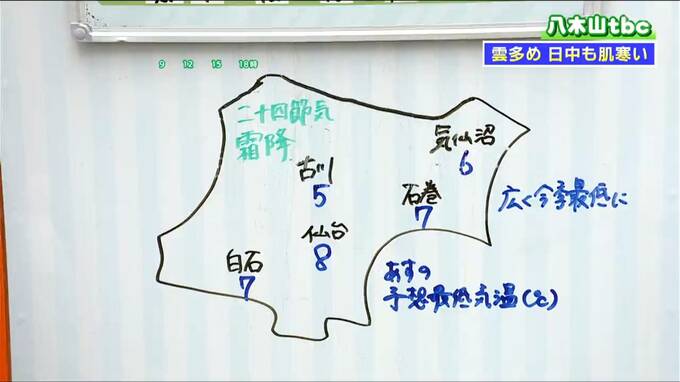 八木山tbc
雲多め 日中も肌寒い
9 12 15 18時
二十四節気
霜降
気仙沼
6
古川
5
石巻
7
広く今季最低に
仙台
8
白石
7
あすの
予想最低気温(℃)